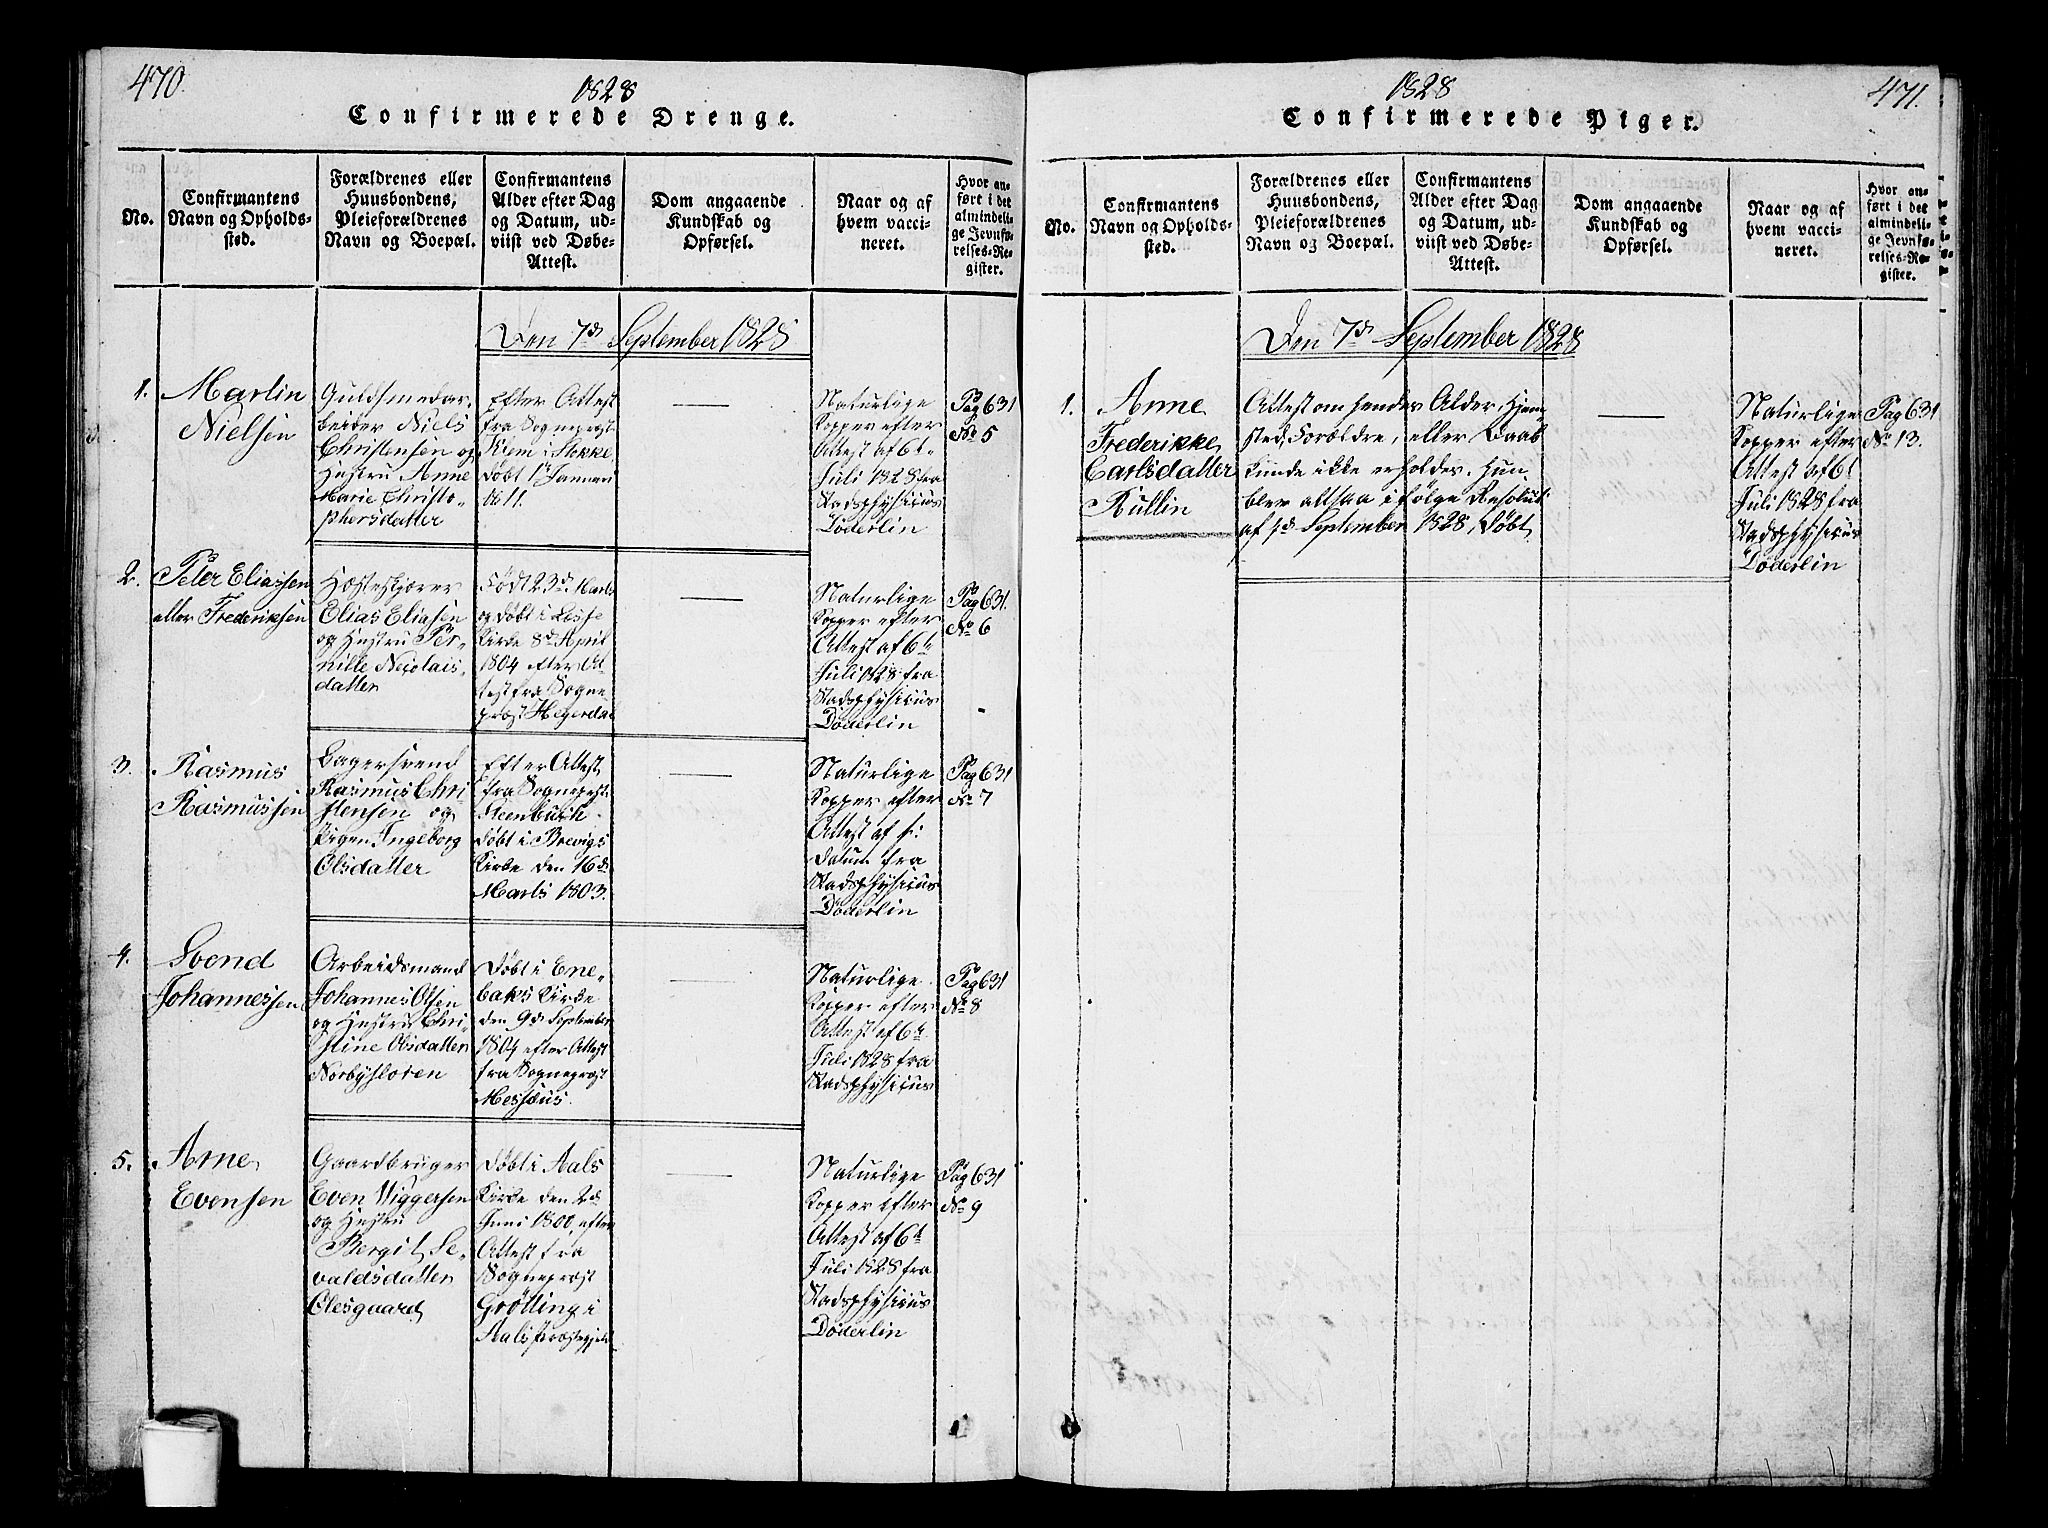 470.
1828
Confirmerede Drenge.
No.
Confirmantens
Navn og Opholds-
sted.
Forældrenes eller
Huusbondens,
Pleieforældrenes
Navn og Boepæl.
Confirmantens
Alder efter Dag
og Datum, ud-
viist ved Døbe-
Attest.
Dom angaaende
Kundskab og
Opførsel.
Naar og af
hvem vacci-
neret.
Hvor an-
ført i det
almindeli-
ge Jevnfø-
relses-Re-
gister.
Den 7d September 1828
1.
Martin
Nielsen
Guldsmedar-
beider Niels
Christensen og
Hustru Anne
Marie Christo-
phersdatter
Efter Attest
fra Sogneprest
Klem i Stokke
døbt 1t Januari
1811.
Naturlige
Kopper efter
Attest af 6t
Juli 1828 fra
Stadsphysicus
Döderlin
Pag 631
No 5
2.
Peter Eliassen
eller Frederiksen
Elias Eliasen
og Hustru Per-
nille Nicolais-
datter
Født 23d Marts
og døbt i
Kirke 8d April
1804 efter At-
test fra Sogne-
prest Heyerdal
Naturlige
Kopper efter
Attest af 6t
Juli 1828 fra
Stadsphysicus
Döderlin
Pag 631.
No 6
3.
Rasmus
Rasmussen
Bagersvend
Rasmus Chri-
stensen og
Pigen Ingeborg
Olsdatter
Efter Attest
fra Sogneprest
Steenbuch
døbt i Brevigs
Kirke den 16d
Marts 1803.
Naturlige
Kopper efter
Attest af s:
datum fra
Stadsphysicus
Döderlin
Pag 631
No 7
4.
Svend
Johannessen
Arbeidsmand
Johannes Olsen
og Hustru Chri-
stine Olsdatter
Norbysloten
Døbt i Ene-
baks Kirke
den 9d September
1804 efter Attest
fra Sogneprest
Messæus.
Naturlige
Kopper efter
Attest af 6t
Juli 1828 fra
Stadsphysicus
Pag 631
No 8
5.
Arne
Evensen
Gaardbruger
Even Viggersen
og Hustru
Bergit Se-
valdsdatter
Olesgaard
Døbt i Aals
Kirke den 2d
Juni 1800, efter
Attest fra
Sogneprest
Grøtting i
Aals Præstegjeld
Naturlige
Kopper efter
Attest af 6t
Juli 1828 fra
Stadsphysicus
Döderlin
Pag 631
No 9
1828
471.
Confirmerede Piger.
No.
Confirmantens
Navn og Opholds-
sted.
Forældrenes eller
Huusbondens,
Pleieforældrenes
Navn og Boepæl.
Confirmantens
Alder efter Dag
og Datum, ud-
viist ved Døbe-
Attest.
Dom angaaende
Kundskab og
Opførsel.
Naar og af
hvem vacci-
neret.
Hvor an-
ført i det
almindeli-
ge Jevnfø-
relses-Re-
gister.
Den 7d September 1828
1.
Anne
Frederikke
Carlsdatter
Rullin
Attest om hendes Alder, Hjem-
sted, Forældre, eller Daab
kunde ikke erholdes. Hun
blev altsaa i følge Resoluti
af 4d September 1828, døbt
Naturlige
Kopper efter
Attest af 6t
Juli 1828 fra
Stadsphysicus
Döderlin
Pag 631
No 13.